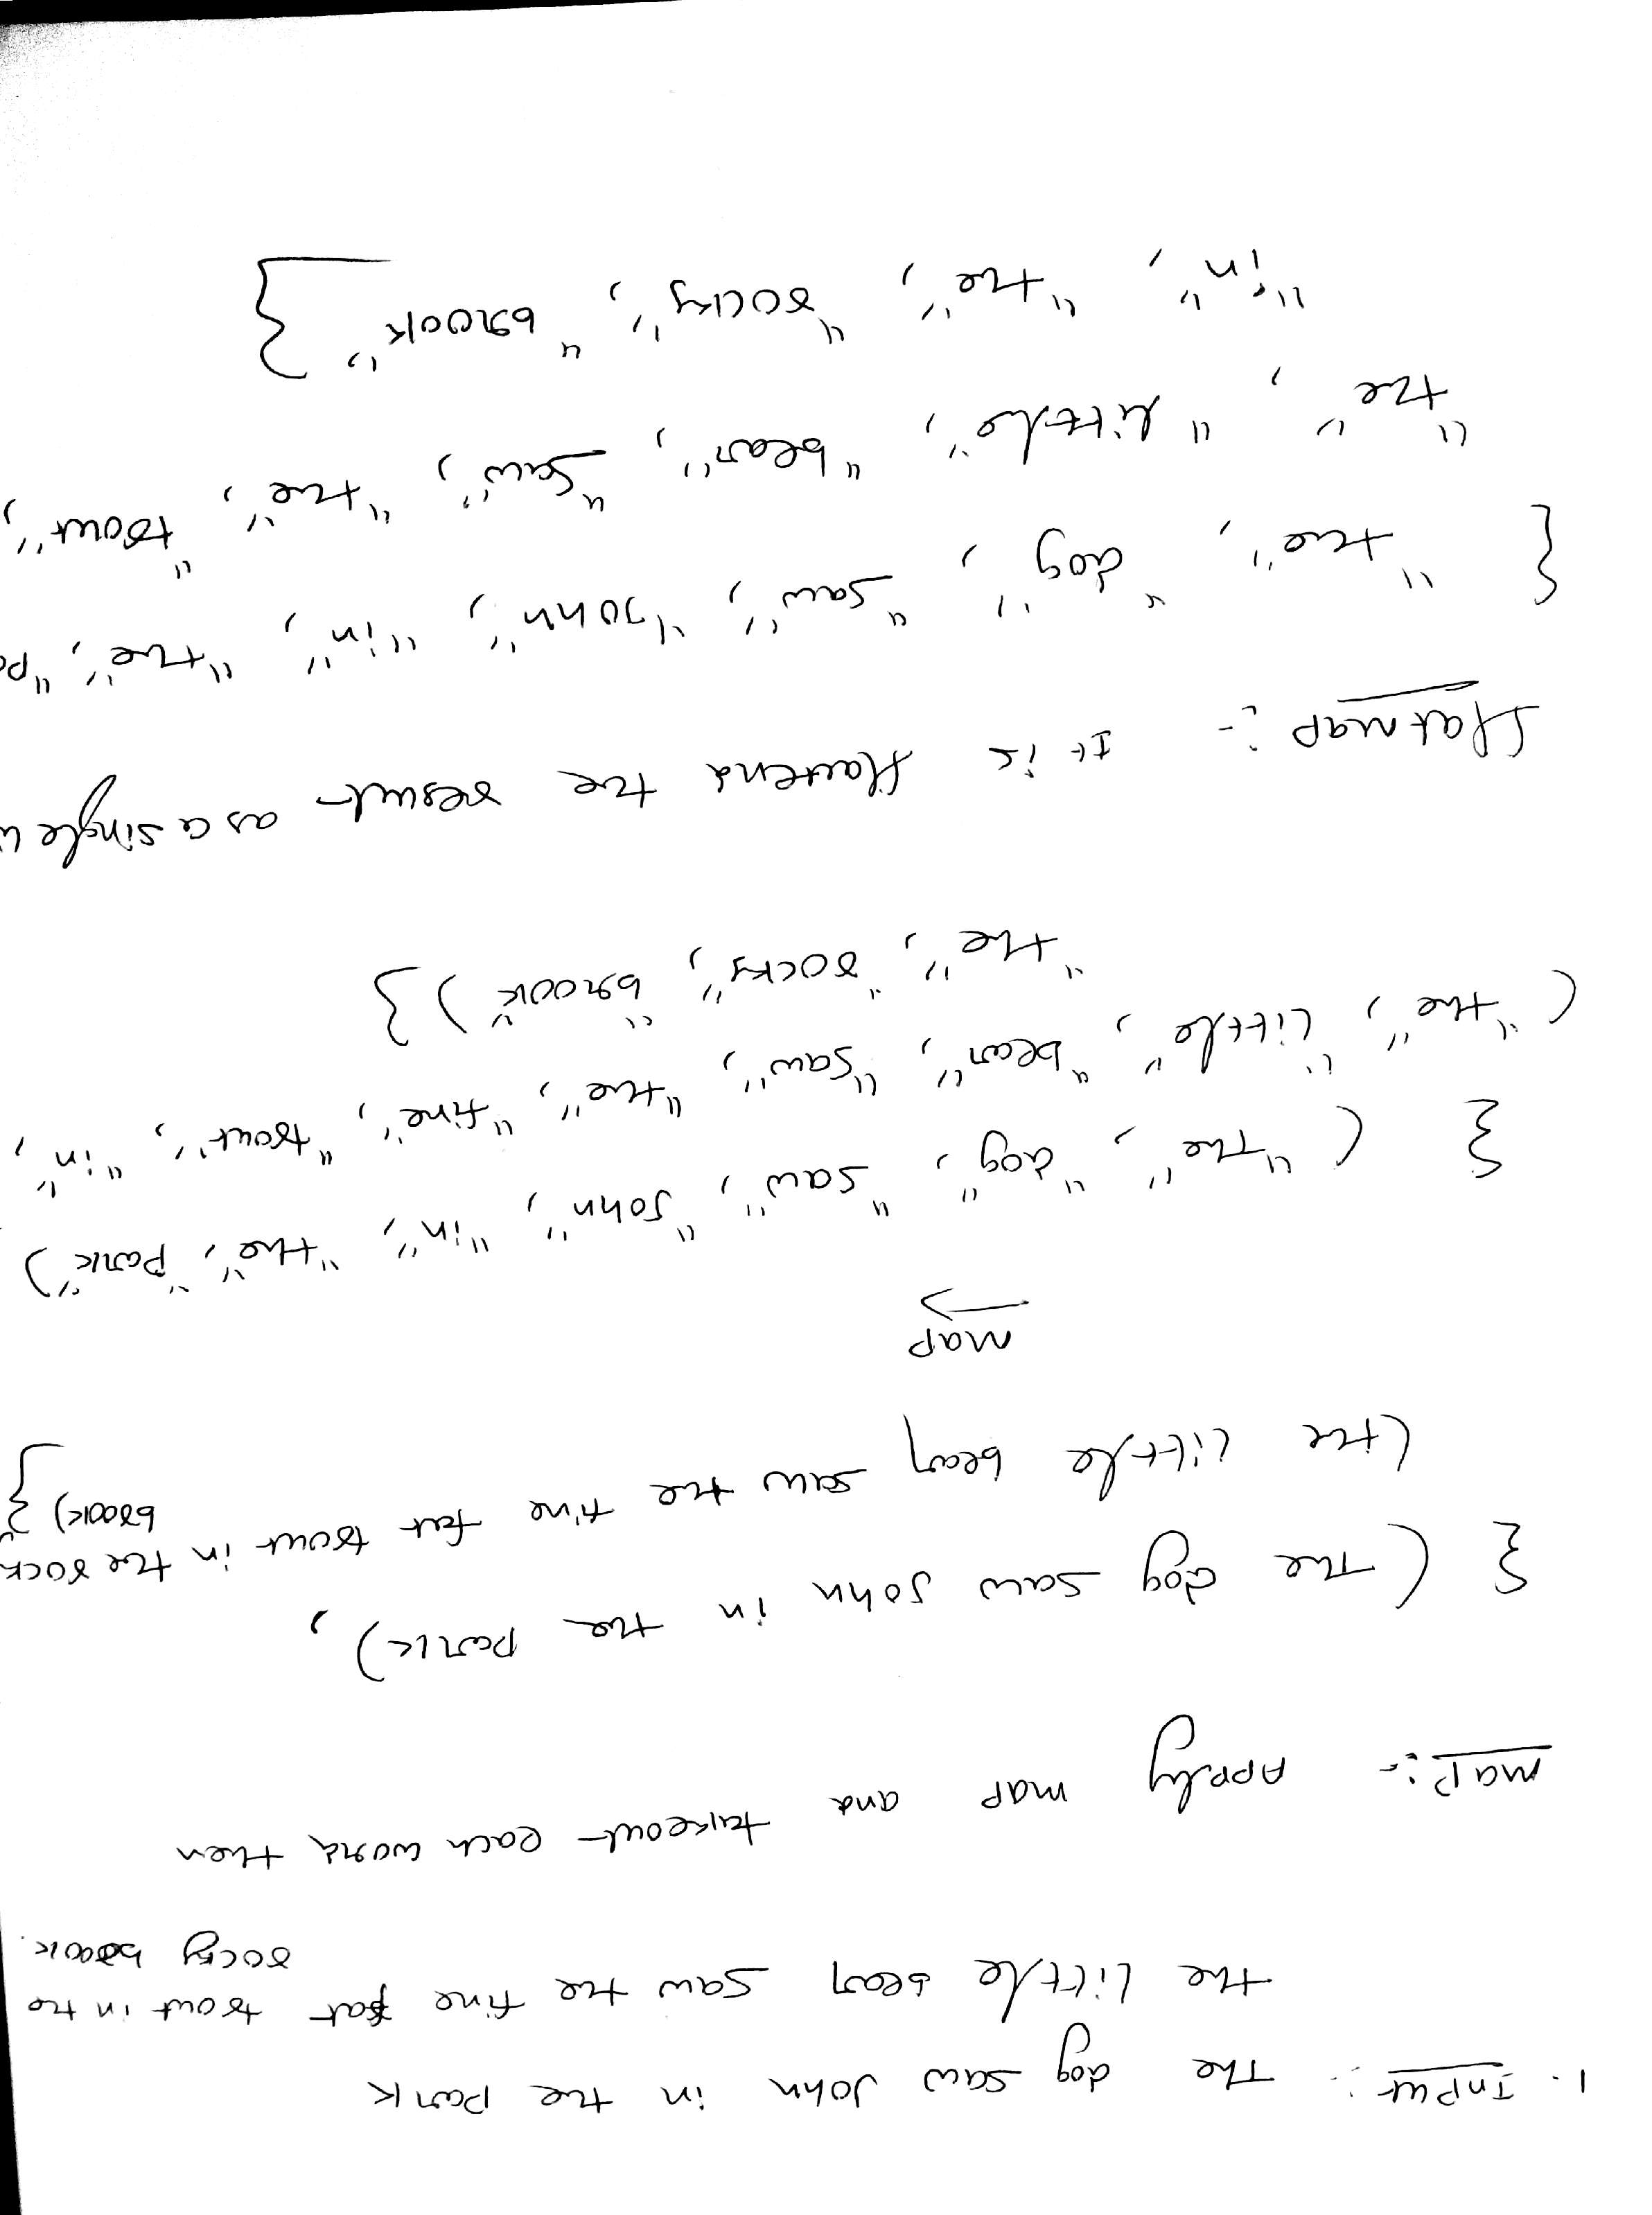 1. Input :- The dog saw John in the park
the little bear saw the fine fat trout in the
rocky brook.
map:- Apply map and takeout each word then
{ (The dog saw john in the park),
(the little bear saw the fine fat trout in the rock
brook) }
map
{ ("The", "dog", "saw", "John", "in", "the", "park")
("the", "little", "bear", "saw", "the", "fine", "trout", "in",
"the", "rocky", "brook") }
flatmap :- It is flattend the result as a single
{ "the", "dog", "saw", "John", "in", "the",
"the", "little", "bear", "saw", "the", "trout",
"in", "the", "rocky", "brook" }